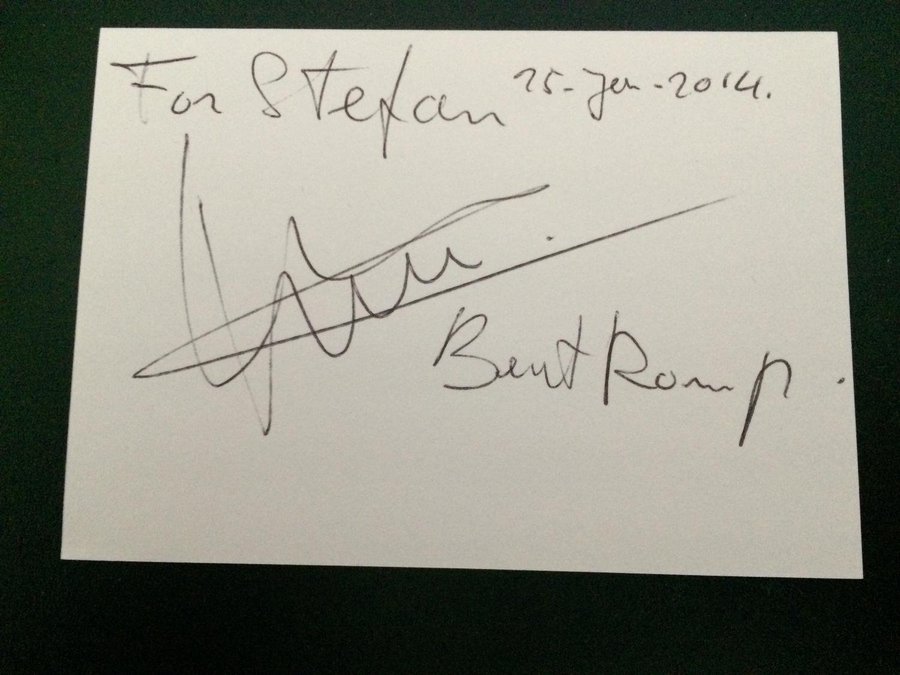 For Stefan 25-Jan-2014.
Bent Romp.